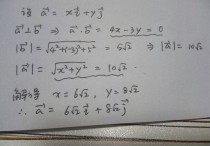 设 a⃗ = x i⃗ + y j⃗
a⃗ ⊥ b⃗ ⇒ a⃗ · b⃗ = 4x - 3y = 0
|b⃗| = √(4²+(-3)²+5²) = 5√2 ⇒ |a⃗| = 10√2
|a⃗| = √(x² + y²) = 10√2
解得 x = 6√2 , y = 8√2
∴ a⃗ = 6√2 i⃗ + 8√2 j⃗